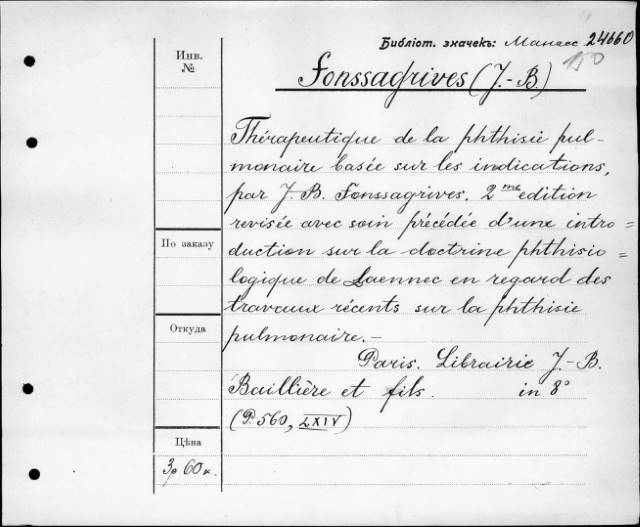 Библіот. значекъ: Манасс 24660
150
Инв.
№
Fonssagrives (J.-B.)
Thérapeutique de la phthisie pul-
monaire basée sur les indications,
par J. B. Fonssagrives. 2me edition
revisée avec soin précédée d'une intro=
По заказу
duction sur la doctrine phthisio=
logique de Laennec en regard des
travaux récents sur la phthisie
Откуда
pulmonaire.-
Paris. Librairie J.-B.
Baillière et fils. in 8°
(P. 560, LXIV)
Цѣна
3р 60к.